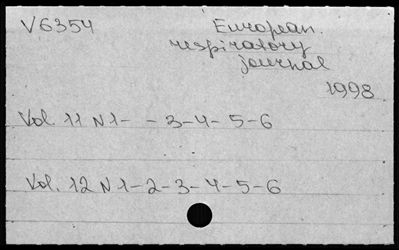 V6354 European
respiratory
journal
1998
Vol. 11 N 1- - 3-4- 5-6
Vol. 12 N 1-2-3-4-5-6